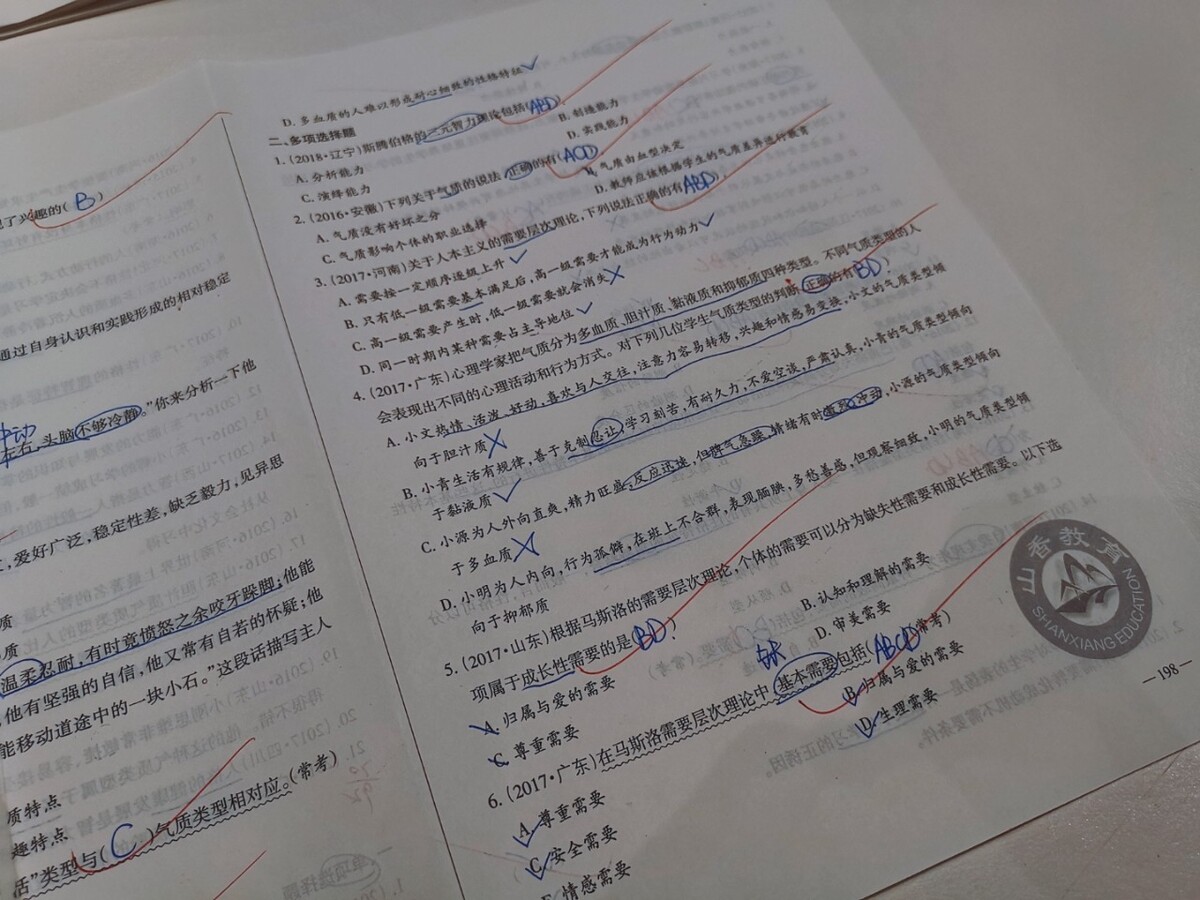 见了兴趣的( B )
通过自身认识和实践形成的相对稳定
冲动
左右,头脑不够冷静。”你来分析一下他
,爱好广泛,稳定性差,缺乏毅力,见异思
质
质
温柔忍耐,有时竟愤怒之余咬牙跺脚;他能
他有坚强的自信,他又常有自若的怀疑;他
能移动道途中的一块小石。”这段话描写主人
质特点
趣特点
活”类型与( C )气质类型相对应。(常考)
D. 多血质的人难以形成耐心细致的性格特征
二、多项选择题
1. (2018·辽宁)斯腾伯格的三元智力理论包括(ABD)。
A. 分析能力 B. 创造能力
C. 演绎能力 D. 实践能力
2. (2016·安徽)下列关于气质的说法正确的有(ACD)
A. 气质没有好坏之分 B. 气质由血型决定
C. 气质影响个体的职业选择 D. 教师应该根据学生的气质差异进行教育
3. (2017·河南)关于人本主义的需要层次理论,下列说法正确的有(ABD)。
A. 需要按一定顺序逐级上升
B. 只有低一级需要基本满足后,高一级需要才能成为行为动力
C. 高一级需要产生时,低一级需要就会消失
D. 同一时期内某种需要占主导地位
4. (2017·广东)心理学家把气质分为多血质、胆汁质、黏液质和抑郁质四种类型。不同气质类型的人
会表现出不同的心理活动和行为方式。对下列几位学生气质类型的判断,正确的有(BD)。
A. 小文热情、活泼、好动,喜欢与人交往,注意力容易转移,兴趣和情感易变换,小文的气质类型倾
向于胆汁质
B. 小青生活有规律,善于克制忍让,学习刻苦,有耐久力,不爱空谈,严肃认真,小青的气质类型倾向
于黏液质
C. 小源为人外向直爽,精力旺盛,反应迅速,但脾气急躁,情绪有时激烈、冲动,小源的气质类型倾向
于多血质
D. 小明为人内向,行为孤僻,在班上不合群,表现腼腆,多愁善感,但观察细致,小明的气质类型倾
向于抑郁质
5. (2017·山东)根据马斯洛的需要层次理论,个体的需要可以分为缺失性需要和成长性需要。以下选
项属于成长性需要的是(BD)。
A. 归属与爱的需要 B. 认知和理解的需要
C. 尊重需要 D. 审美需要
缺
6. (2017·广东)在马斯洛需要层次理论中,基本需要包括(ABCD)(常考)
A. 尊重需要 B. 归属与爱的需要
C. 安全需要 D. 生理需要
E. 情感需要
山香教育
SHANXIANG EDUCATION
— 198 —